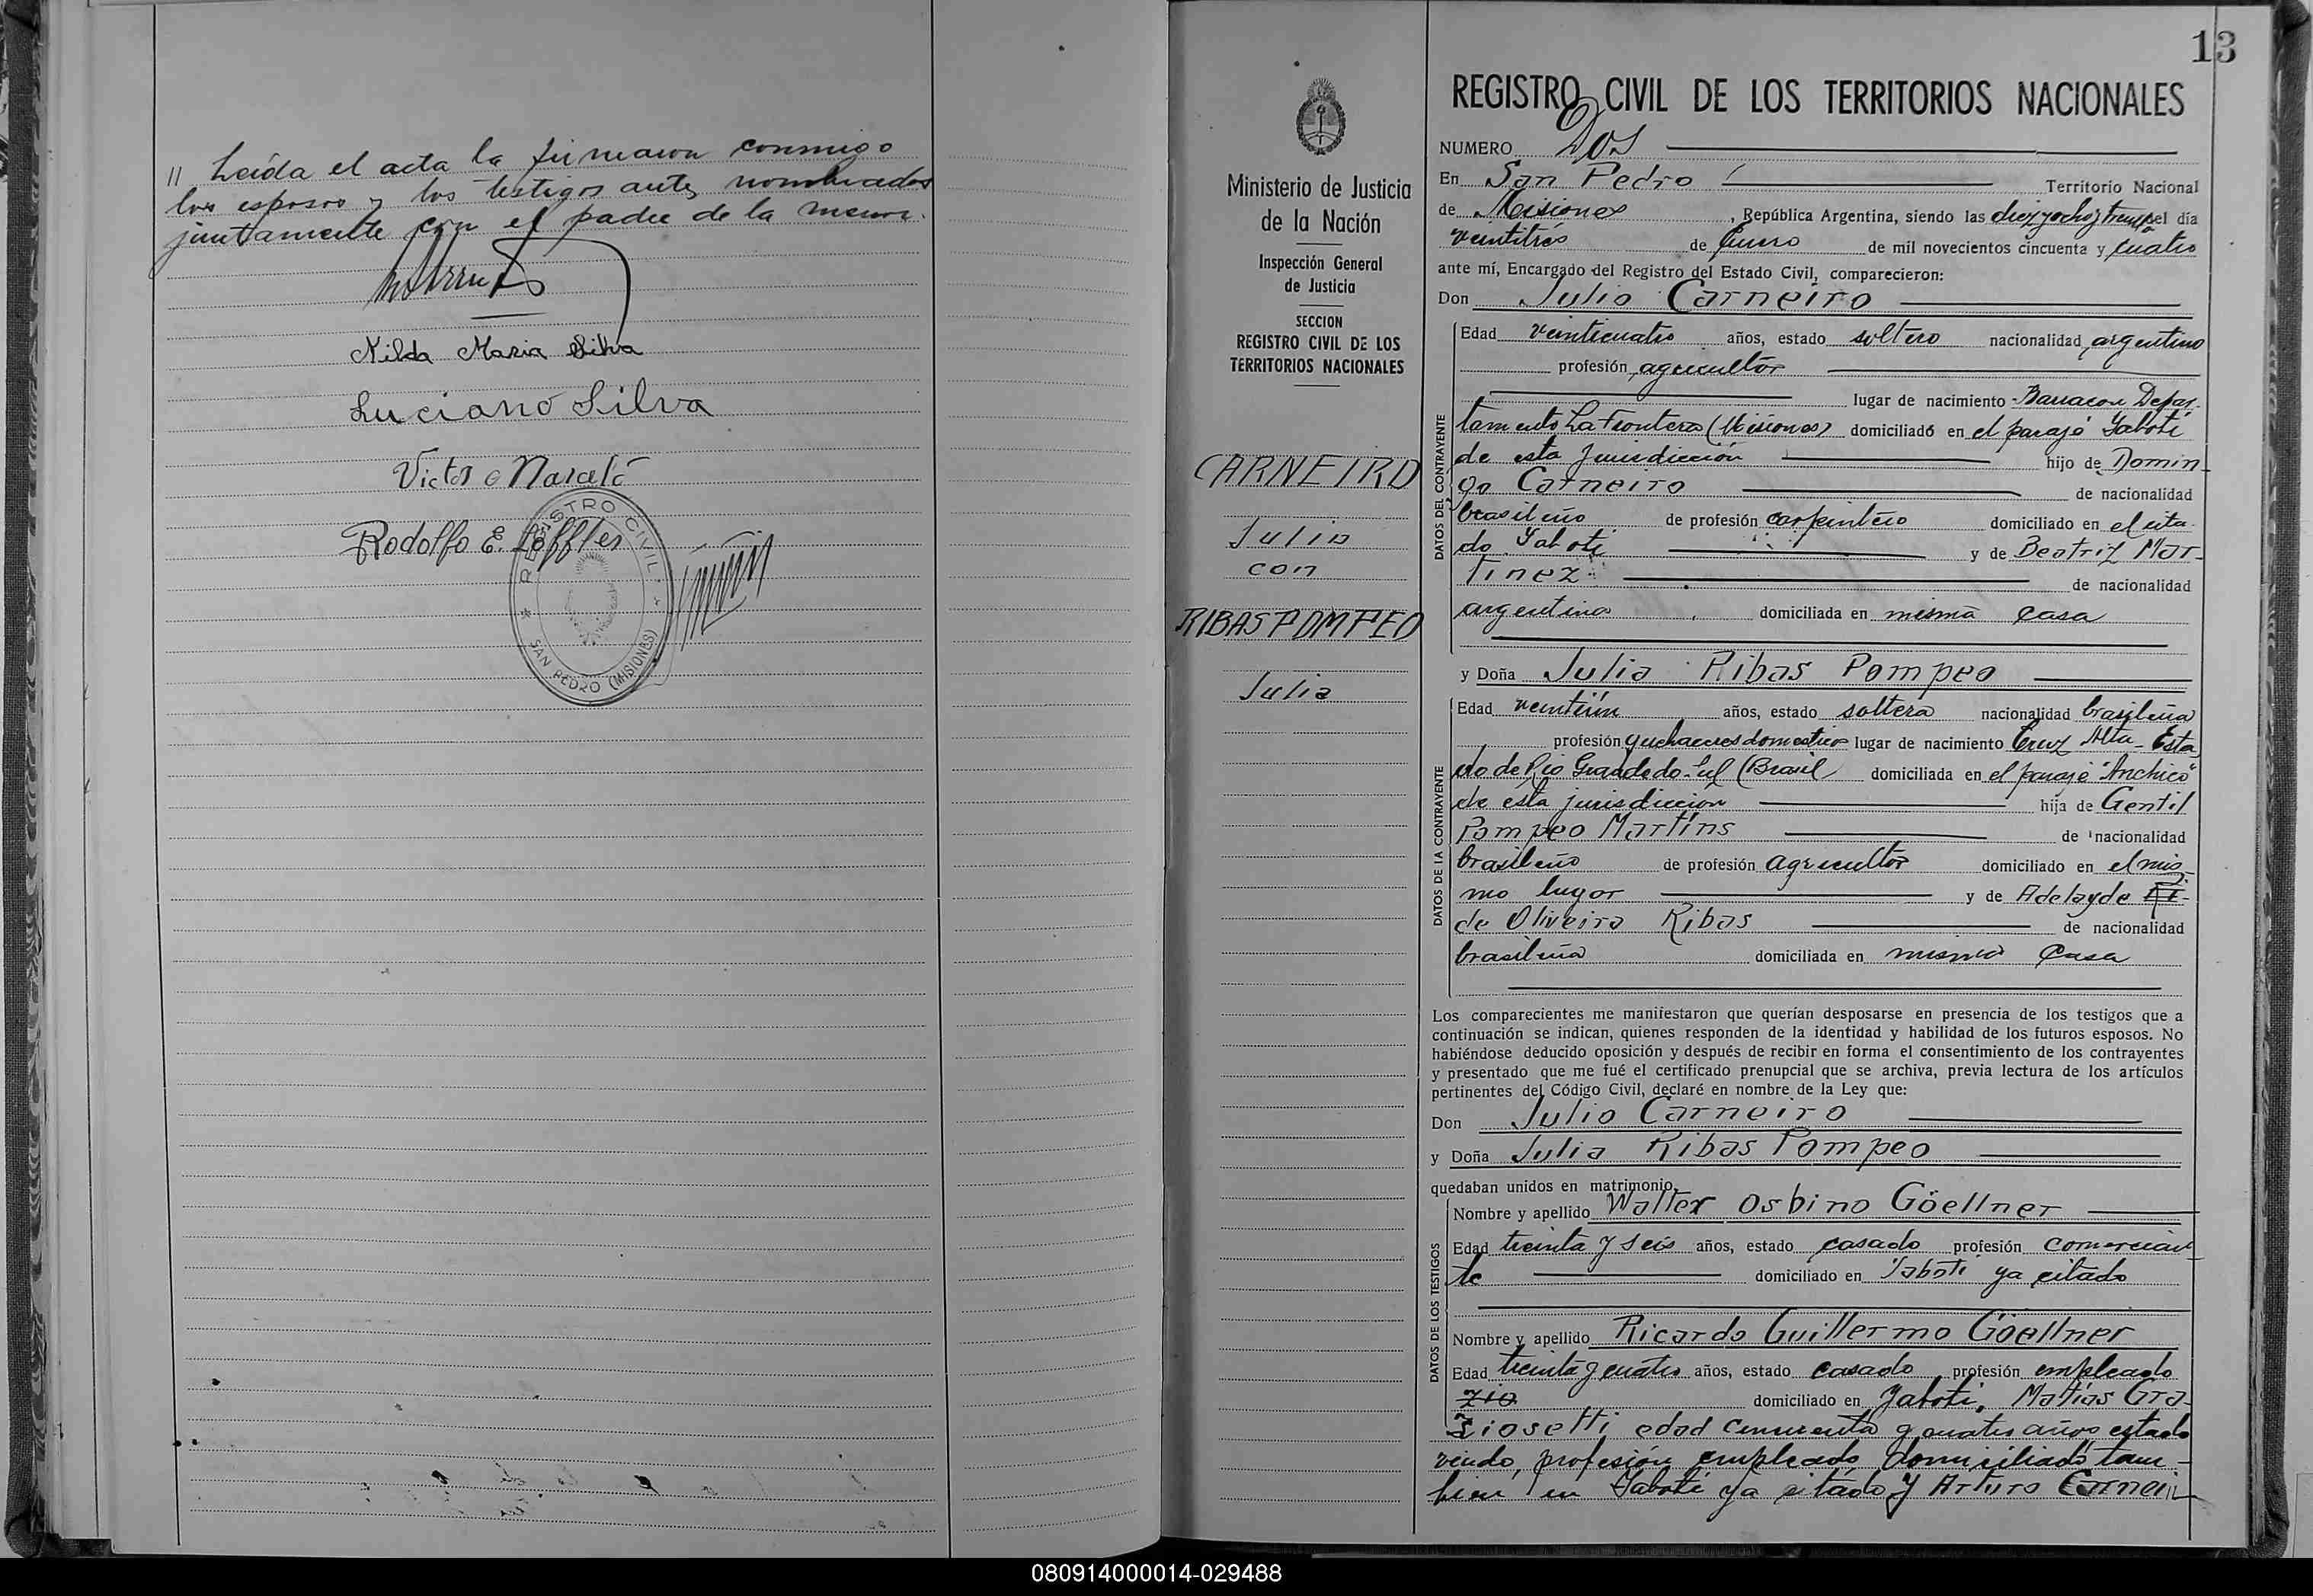 " Leída el acta la firmaron conmigo
los esposos y los testigos antes nombrados
juntamente con el padre de la menor.
Nilda Maria Silva
Luciano Silva
Victor
Rodolfo E. Löffler
REGISTRO CIVIL
SAN PEDRO (MISIONES)
13
Ministerio de Justicia
de la Nación
Inspección General
de Justicia
SECCION
REGISTRO CIVIL DE LOS
TERRITORIOS NACIONALES
CARNEIRO
Julio
con
RIBAS POMPEO
Julia
REGISTRO CIVIL DE LOS TERRITORIOS NACIONALES
NUMERO Dos
En San Pedro Territorio Nacional
de Misiones, República Argentina, siendo las diez y ocho y treinta del día
veintitrés de Enero de mil novecientos cincuenta y cuatro
ante mí, Encargado del Registro del Estado Civil, comparecieron:
Don Julio Carneiro
DATOS DEL CONTRAYENTE
Edad veinticuatro años, estado soltero nacionalidad argentino
profesión agricultor
lugar de nacimiento Barracon Depar-
tamento La Frontera (Misiones) domiciliado en el paraje Yabotí
de esta jurisdicción hijo de Domin-
go Carneiro de nacionalidad
brasileño de profesión carpintero domiciliado en el cita-
do Yabotí y de Beatriz Mar-
tinez de nacionalidad
argentina domiciliada en misma casa
y Doña Julia Ribas Pompeo
DATOS DE LA CONTRAYENTE
Edad veintiún años, estado soltera nacionalidad brasileña
profesión quehaceres domesticos lugar de nacimiento Cruz Alta- Esta
do de Rio Grande do Sul (Brasil domiciliada en el paraje "Anchico"
de esta jurisdicción hija de Gentil
Pompeo Martins de nacionalidad
brasileño de profesión agricultor domiciliado en el mis-
mo lugar y de Adelayde Ri-
de Oliveira Ribas de nacionalidad
brasileña domiciliada en misma casa
Los comparecientes me manifestaron que querían desposarse en presencia de los testigos que a
continuación se indican, quienes responden de la identidad y habilidad de los futuros esposos. No
habiéndose deducido oposición y después de recibir en forma el consentimiento de los contrayentes
y presentado que me fué el certificado prenupcial que se archiva, previa lectura de los artículos
pertinentes del Código Civil, declaré en nombre de la Ley que:
Don Julio Carneiro
y Doña Julia Ribas Pompeo
quedaban unidos en matrimonio.
DATOS DE LOS TESTIGOS
Nombre y apellido Walter Osbino Göellner
Edad treinta y seis años, estado casado profesión comercian-
te domiciliado en Yabotí ya citado
Nombre y apellido Ricardo Guillermo Göellner
Edad treinta y cuatro años, estado casado profesión empleado
zio domiciliado en Yabotí, Matías Gra-
ziosetti edad cincuenta y cuatro años estado
viudo, profesión empleado, domiciliado tam-
bien en Yabotí ya citado y Arturo Carnei
080914000014-029488